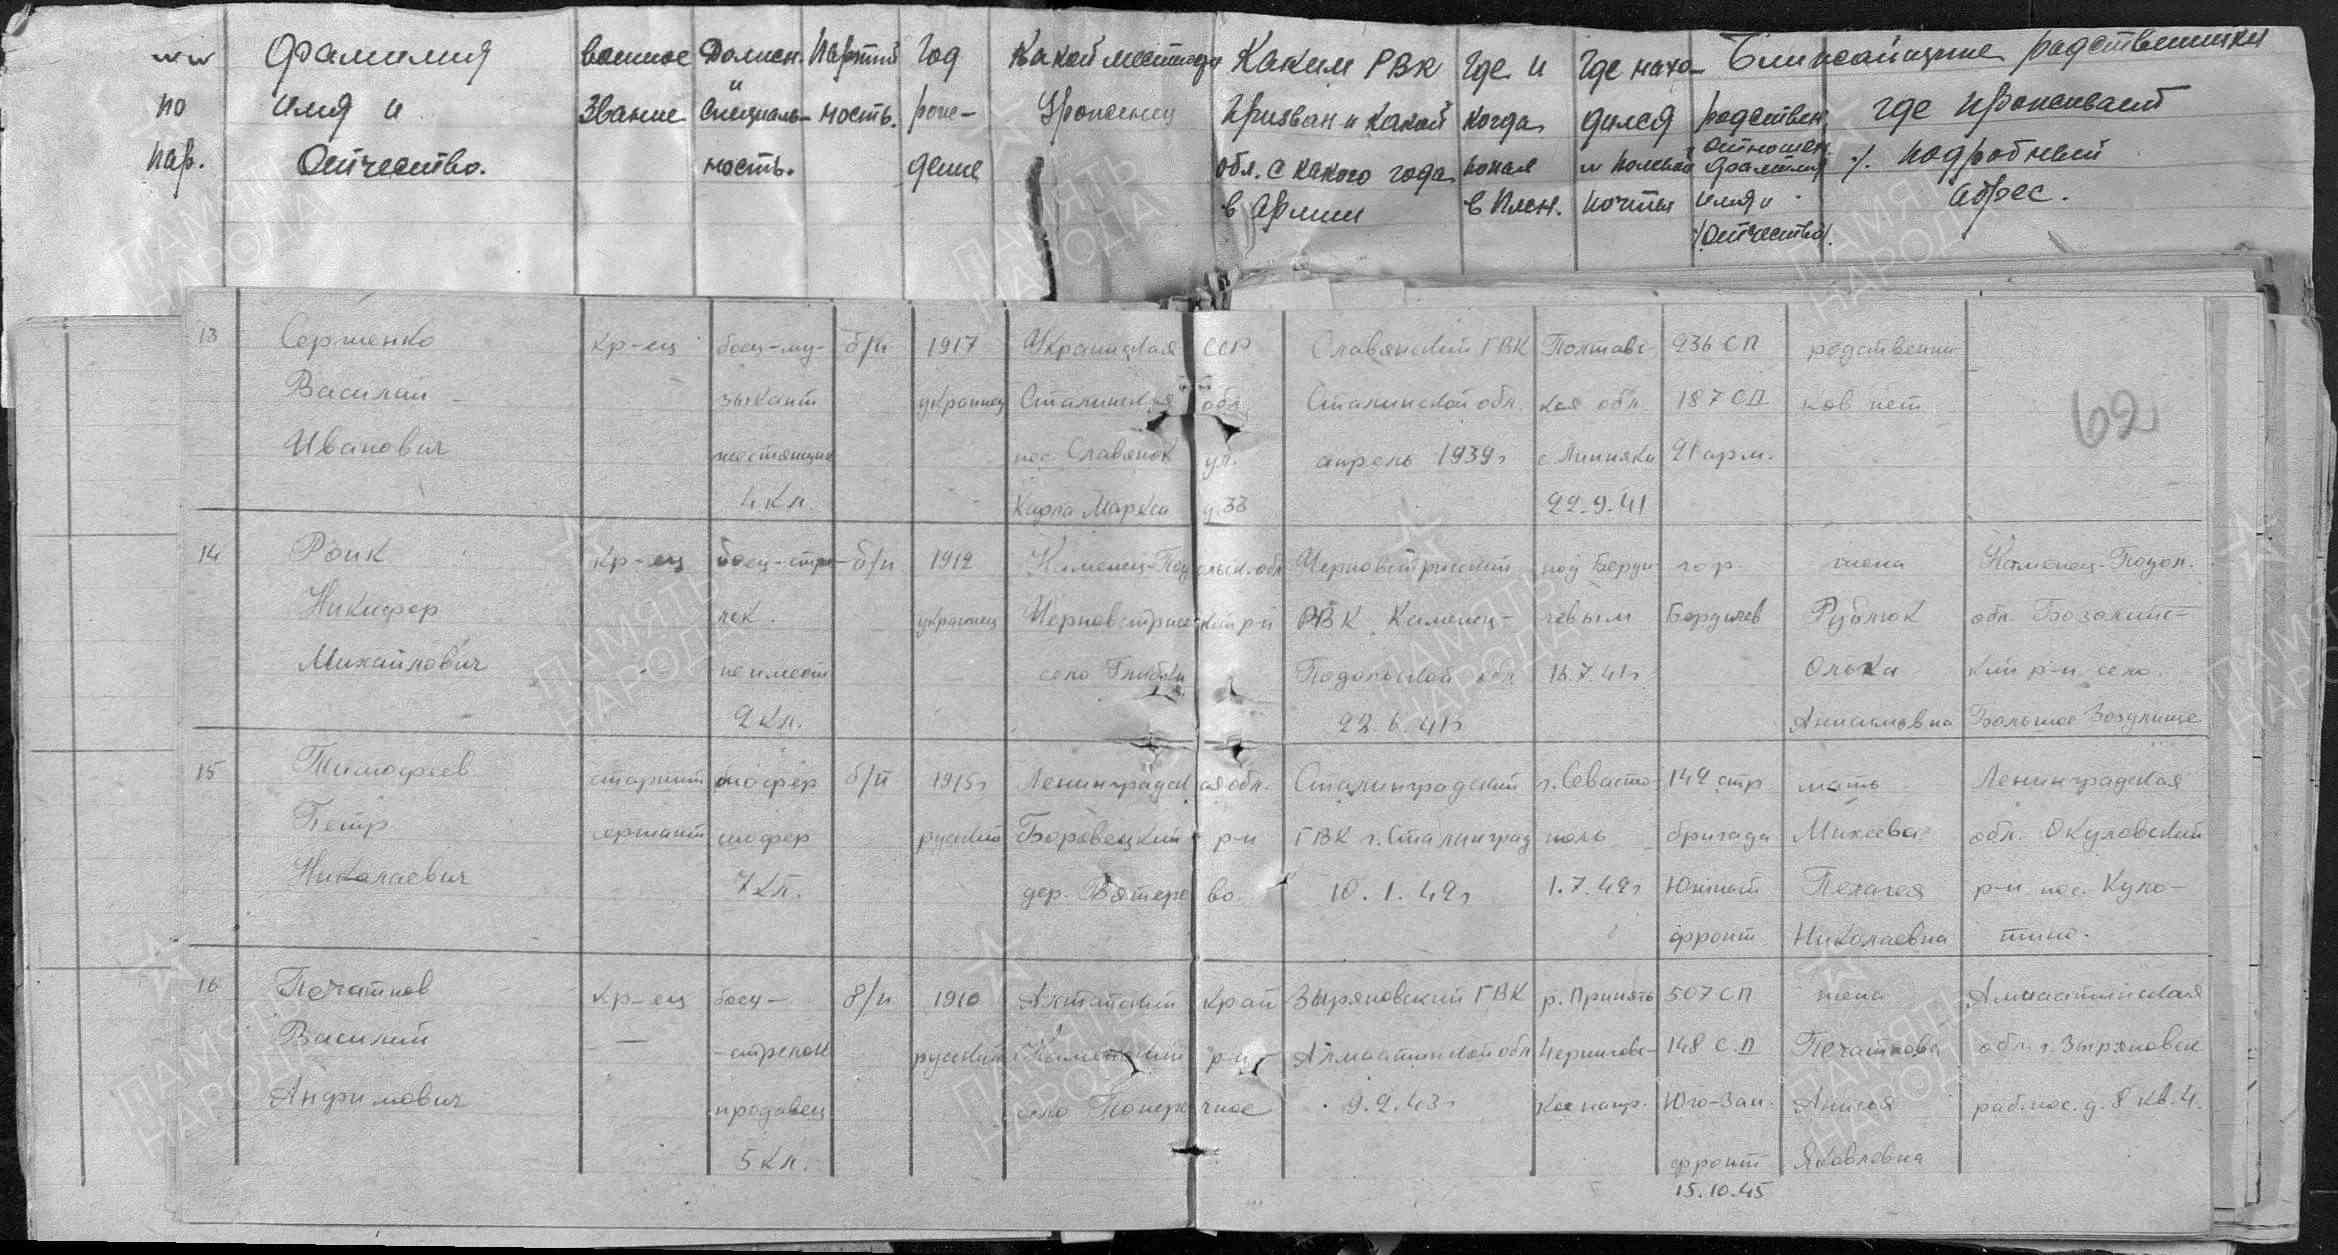 №№ по пар.
Фамилия имя и Отчество.
военное Звание
Должн. и Специальность.
Партий ность.
год рождение
Какой местности Уроженец
Каким РВК Призван и какой обл. с какого года в Армии
Где и когда попал в Плен.
Где находился и полевой почты
Ближайщие родственники
родствен. отношен. фамилия имя и /отчество/.
где проживает /. подробный адрес.
62
13
Серженко Василий Иванович
кр-ец
боец-му-
зыкант
4 кл.
б/п
1917
украинец
Украинская ССР
Сталинская обл.
пос. Славянск ул.
Карла Маркса д. 33
Славянский ГВК
Сталинской обл.
апрель 1939г
Полтавс-
кая обл.
22.9.41
936 СП
187 СД
21 арм.
родственни
ков нет
14
Роик
Никифор
Михайлович
кр-ец
боец-стре-
лок.
не имеет
2 кл.
б/п
1912
украинец
Каменец-Подольск. обл
село
РВК Каменец-
Подольской обл
22.6.41г
под Берди
чевым
16.7.41г
гор.
Бердичев
жена
Рублюк
Каменец-Подол.
обл.
кий р-н село
Большое
15
Тимофеев
Петр
Николаевич
старший
сержант
шофер
шофер
7 кл.
б/п
1915г
русский
Ленинградская обл.
Боровецкий р-н
дер.
Сталинградский
ГВК г. Сталинград
10.1.42г
г. Севасто-
поль
1.7.42г
142 стр
бригада
Южный
фронт
мать
Михеева
Пелагея
Николаевна
Ленинградская
обл. Окуловский
р-н пос. Куло-
тино.
16
Печатнов
Василий
Анфимович
кр-ец
боец-
-стрелок
продавец
5 кл.
б/п
1910
русский
Алтайский край
р-н
село Поперечное
Зыряновский ГВК
Алмаатинской обл
9.2.43г
р. Припять
Черниговс-
кое напр.
507 СП
148 С.Д
Юго-Зап.
фронт
15.10.45
жена
Печатнова
Анисья
Яковлевна
Алмаатинская
обл. г. Зыряновск
раб. пос. д. 8 кв. 4.